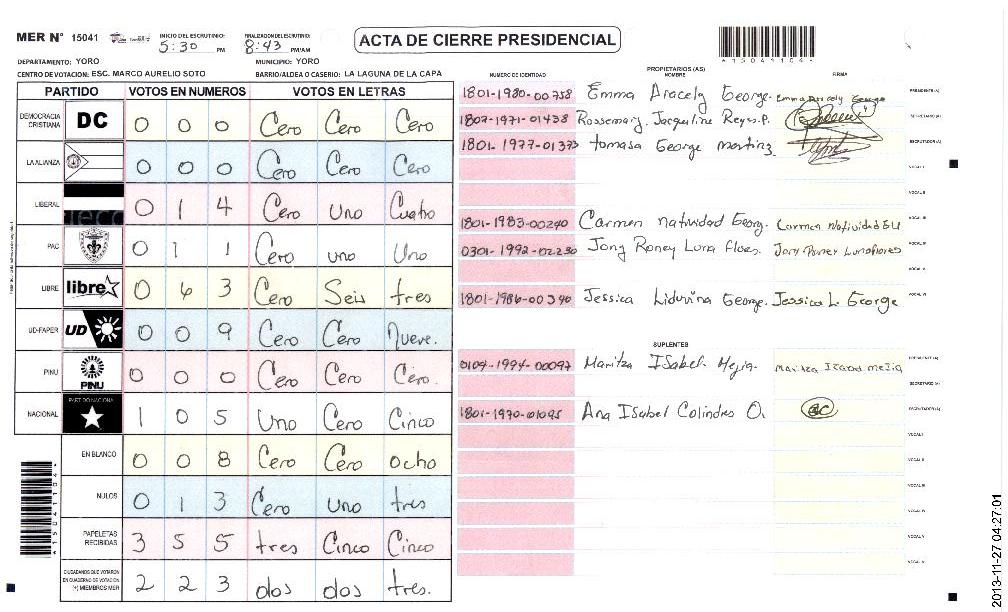 MER N° 15041
INICIO DEL ESCRUTINIO: 5:30 PM
FINALIZACION DEL ESCRUTINIO: 8:43 PM/AM
ACTA DE CIERRE PRESIDENCIAL
DEPARTAMENTO: YORO
MUNICIPIO: YORO
CENTRO DE VOTACION: ESC. MARCO AURELIO SOTO
BARRIO/ALDEA O CASERIO: LA LAGUNA DE LA CAPA
PARTIDO VOTOS EN NUMEROS VOTOS EN LETRAS
DEMOCRACIA CRISTIANA DC 0 0 0 Cero Cero Cero
LA ALIANZA 0 0 0 Cero Cero Cero
LIBERAL 0 1 4 Cero Uno Cuatro
PAC 0 1 1 Cero uno Uno
LIBRE libre 0 6 3 Cero Seis tres
UD-FAPER UD 0 0 9 Cero Cero Nueve.
PINU PINU 0 0 0 Cero Cero Cero.
NACIONAL PARTIDO NACIONAL 1 0 5 Uno Cero Cinco
EN BLANCO 0 0 8 Cero Cero ocho
NULOS 0 1 3 Cero uno tres
PAPELETAS RECIBIDAS 3 5 5 tres Cinco Cinco
CIUDADANOS QUE VOTARON EN CUADERNO DE VOTACION (+) MIEMBROS MER 2 2 3 dos dos tres.
*15041104*
PROPIETARIOS (AS)
NUMERO DE IDENTIDAD NOMBRE FIRMA
1801-1980-00758 Emma Aracely George. Emma Aracely George PRESIDENTE (A)
1807-1971-01438 Rossemary Jacqueline Reyes.P. SECRETARIO (A)
1801-1977-01373 tomasa George martinz ESCRUTADOR (A)
VOCAL I
VOCAL II
1801-1983-00240 Carmen natividad Georg. Carmen Natividad VOCAL III
0301-1992-02230 Jony Roney Luna Flores. Jony Roney Lunaflores VOCAL IV
VOCAL V
1801-1986-00340 Jessica Liduvina George. Jessica L. George VOCAL VI
SUPLENTES
0107-1994-00097 Maritza ISabel Mejia. Maritza Isabel mejia PRESIDENTE (A)
SECRETARIO (A)
1801-1970-01095 Ana Isabel Colindres O. ESCRUTADOR (A)
VOCAL I
VOCAL II
VOCAL III
VOCAL IV
VOCAL V
VOCAL VI
2013-11-27 04:27:01